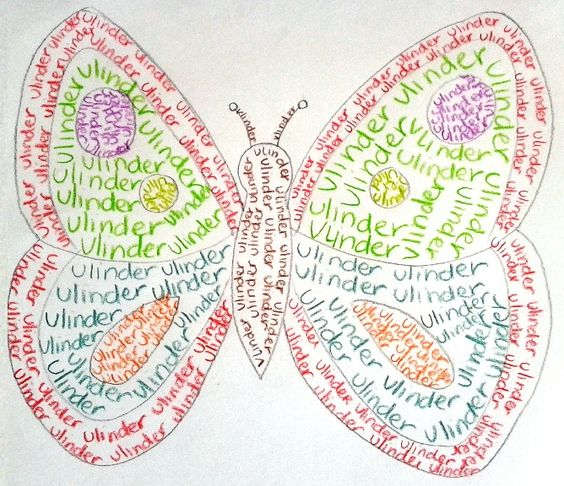 vlinder
vlinder
vlinder vlinder vlinder vlinder vlinder vlinder
vlinder vlinder vlinder vlinder vlinder vlinder
vlinder vlinder
vlinder
vlinder vlinder
vlinder vlinder
vlinder
vlinder vlinder
vlinder vlinder
vlinder
vlinder
vlinder vlinder vlinder vlinder vlinder vlinder
vlinder vlinder vlinder vlinder vlinder vlinder
vlinder vlinder vlinder
vlinder vlinder
vlinder
vlinder
vlinder vlinder
vlinder vlinder
vlinder
vlinder
vlinder
vlinder
vlinder vlinder vlinder
vlinder vlinder vlinder
vlinder vlinder vlinder
vlinder
vlinder vlinder
vlinder vlinder
vlinder vlinder
vlinder vlinder
vlinder vlinder
vlinder
vlinder
vlinder
vlinder vlinder vlinder vlinder vlinder
vlinder vlinder vlinder vlinder vlinder
vlinder vlinder
vlinder vlinder
vlinder vlinder
vlinder vlinder
vlinder vlinder
vlinder vlinder
vlinder
vlinder
vlinder
vlinder vlinder vlinder vlinder vlinder
vlinder vlinder vlinder vlinder vlinder